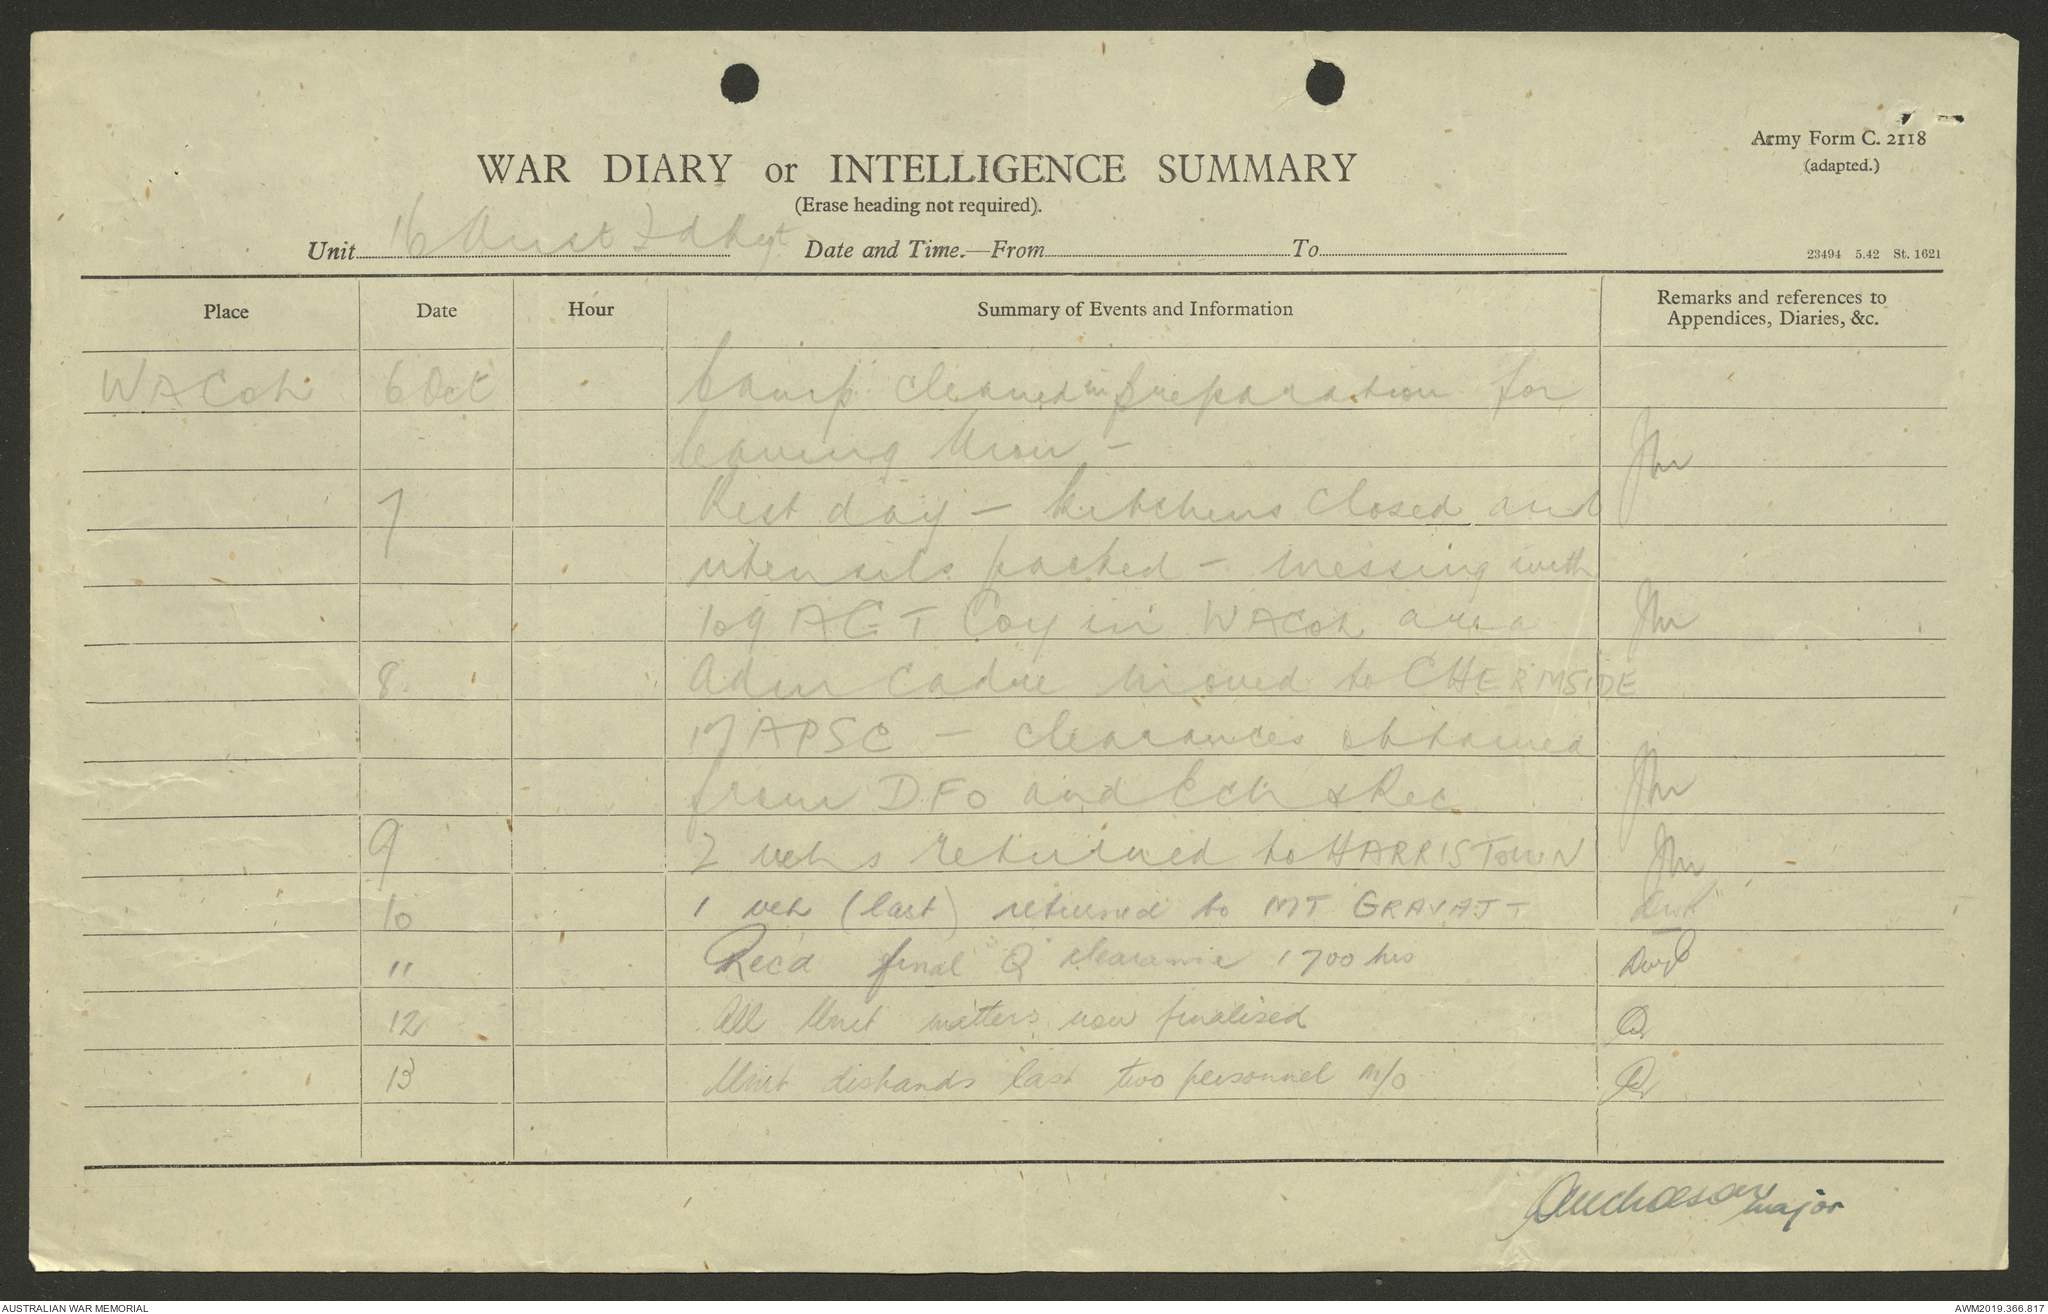 Army Form C. 2118
(adapted.)
WAR DIARY or INTELLIGENCE SUMMARY
(Erase heading not required).
Unit 16 Aust Fd Regt Date and Time.—From To
23494 5.42 St. 1621
Place Date Hour Summary of Events and Information Remarks and references to Appendices, Diaries, &c.
WACOL 6 Oct Camp cleaned in preparation for
leaving
7 Rest day - kitchens closed and
utensils packed - messing with
109 AGT Coy in WACOL area
8 Adm Cadre moved to CHERMSIDE
17 APSC - clearances obtained
from DFO and Ech & Rec
9 2 vehs returned to HARRISTOWN
10 1 veh (last) returned to MT GRAVATT
11 Rec'd final Q clearance 1700 hrs
12 All Unit matters now finalised
13 Unit disbands last two personnel m/o
major
AUSTRALIAN WAR MEMORIAL
AWM2019.366.817